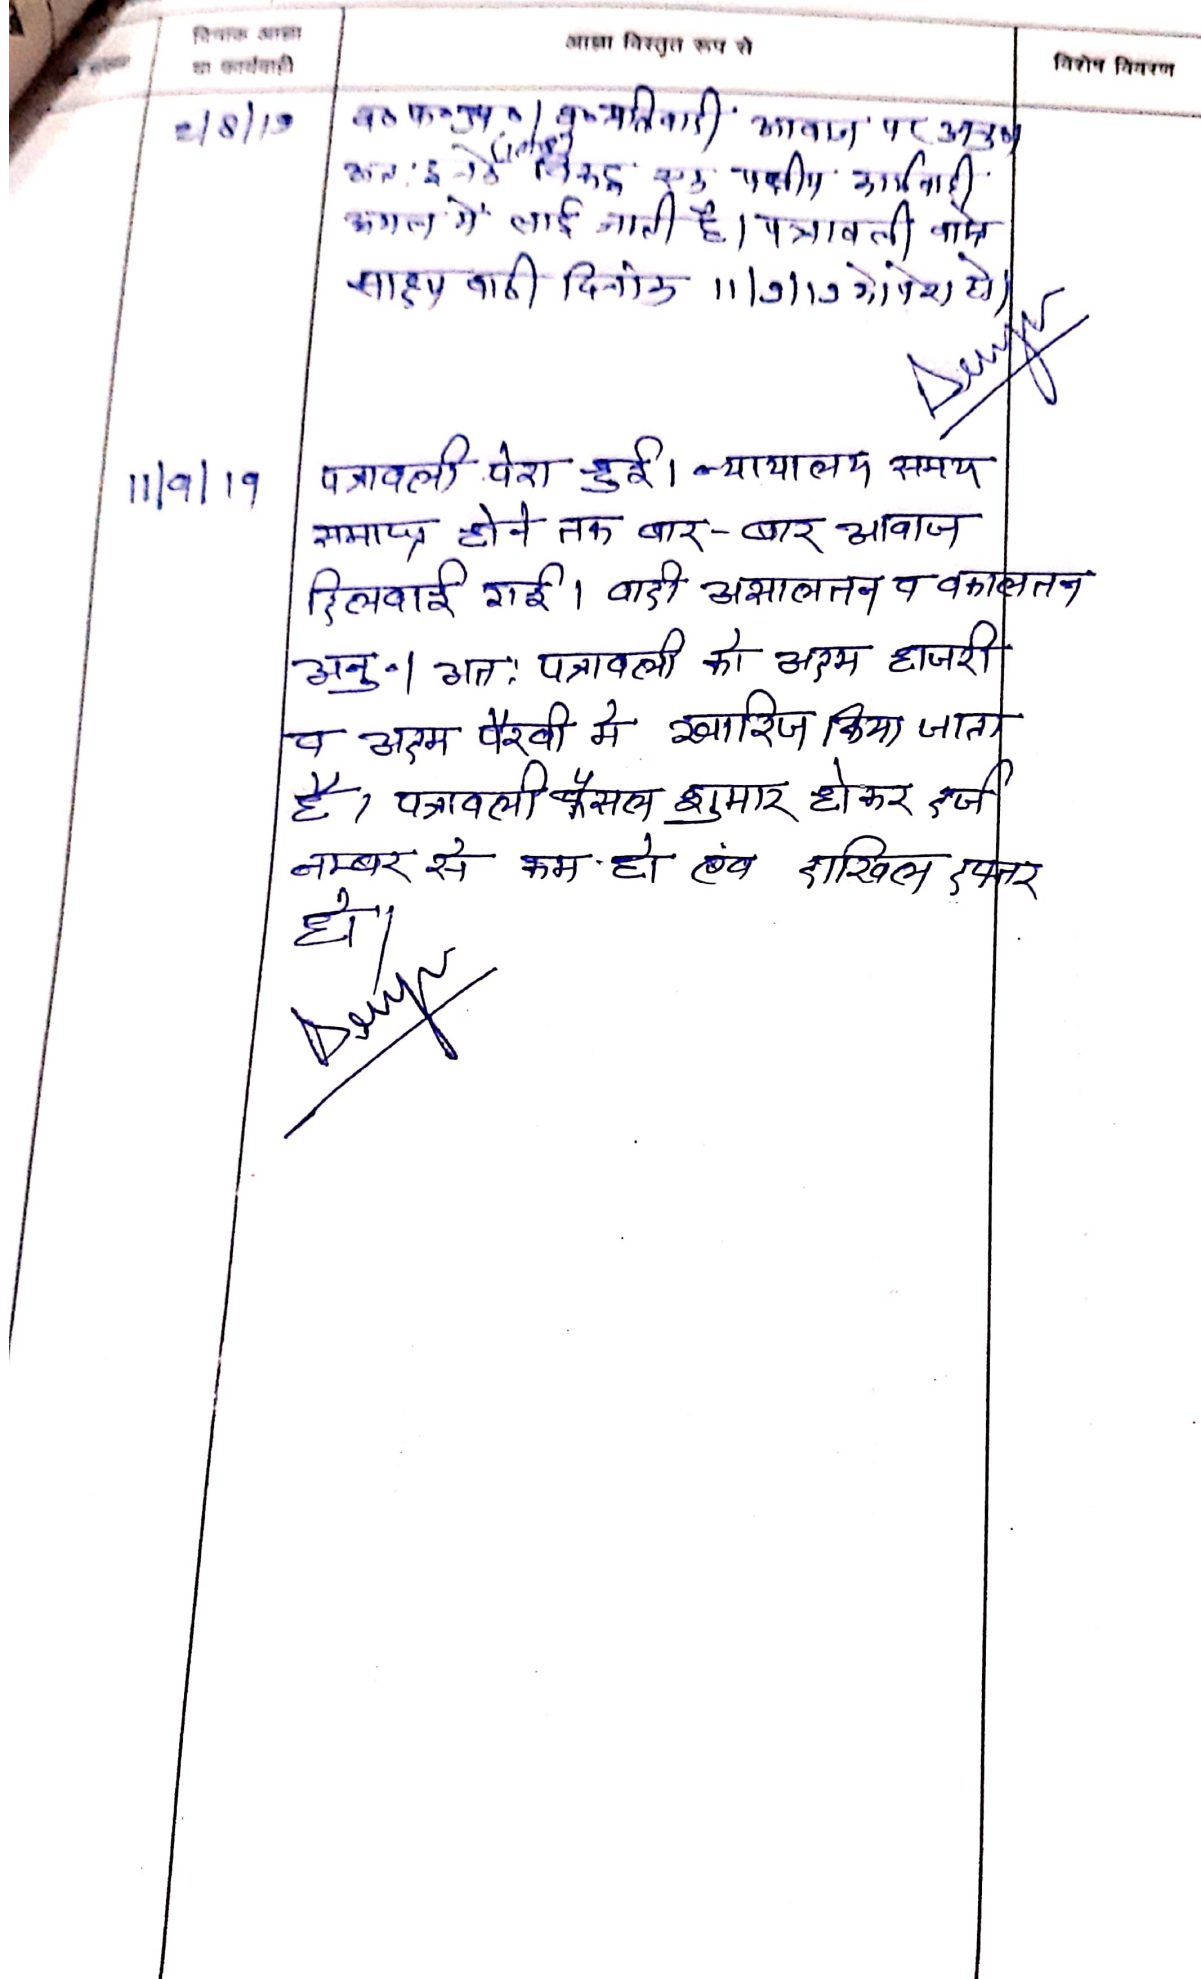 दिनांक आज्ञा
या कार्यवाही
आज्ञा विस्तृत रूप से
विशेष विवरण
2/8/19
प्रतिवादी आवाज पर अनु०
अतः इनके विरुद्ध एक पक्षीय कार्यवाही
अमल में लाई जाती है। पत्रावली वास्ते
साक्ष्य वादी दिनांक 11/9/19 को पेश हो।
11/9/19
पत्रावली पेश हुई। न्यायालय समय
समाप्त होने तक बार-बार आवाज
दिलवाई गई। वादी असालतन व वकालतन
अनु०। अतः पत्रावली को अदम हाजरी
व अदम पैरवी मे खारिज किया जाता
है, पत्रावली फैसल शुमार होकर दर्ज
नम्बर से कम हो एंव दाखिल दफ्तर
हो।